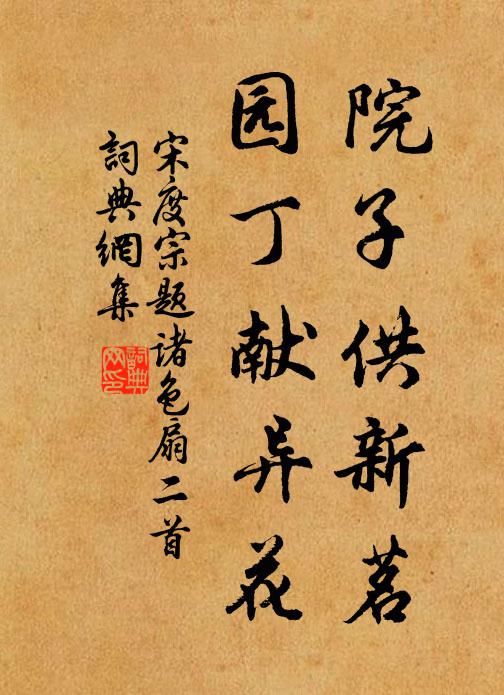 院子供新茗
园丁献异花
宋度宗题诸色扇二首
詞典網集
詞典网印